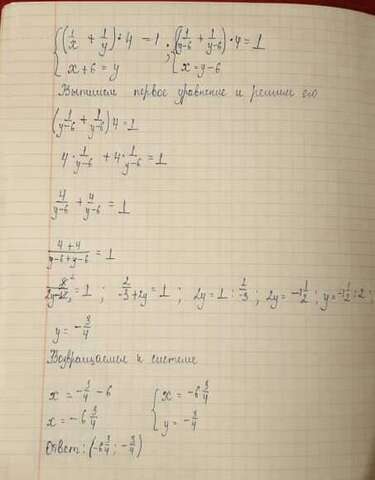 {(1/x + 1/y)·4 = 1 ; {(1/y-6 + 1/y-6)·4 = 1
x+6 = y   x = y-6
Выпишем первое уравнение и решим его
(1/y-6 + 1/y-6)4 = 1
4·1/y-6 + 4·1/y-6 = 1
4/y-6 + 4/y-6 = 1
4+4/y-6+y-6 = 1
8/2y-12 = 1 ; 2/-3+2y = 1 ; 2y = 1 : 2/-3 ; 2y = -1 1/2 ; y = -1 1/2 : 2 ;
y = -3/4
Возвращаемся к системе
x = -3/4 - 6   {x = -6 3/4
x = -6 3/4   y = -3/4
Ответ: (-6 3/4 ; -3/4)